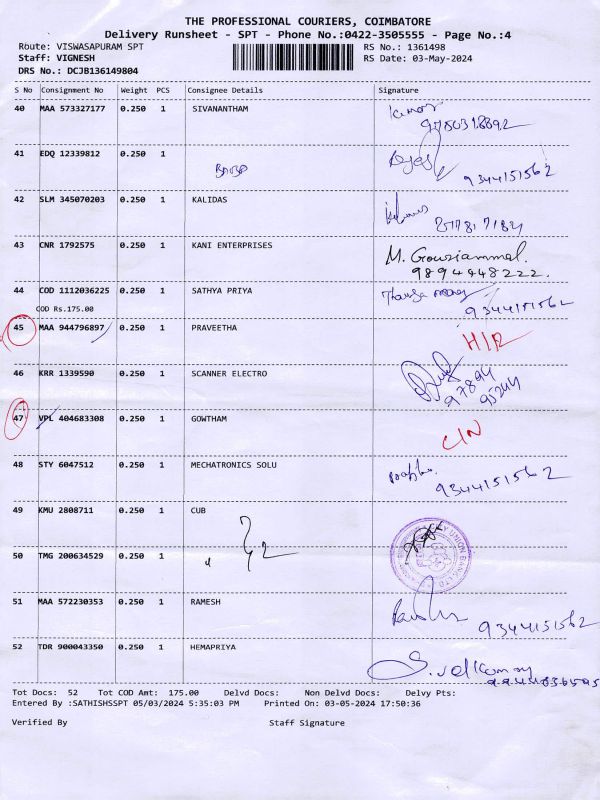 THE PROFESSIONAL COURIERS, COIMBATORE
Delivery Runsheet - SPT - Phone No.:0422-3505555 - Page No.:4
Route: VISWASAPURAM SPT RS No.: 1361498
Staff: VIGNESH RS Date: 03-May-2024
DRS No.: DCJB136149804
S No Consignment No Weight PCS Consignee Details Signature
40 MAA 573327177 0.250 1 SIVANANTHAM
41 EDQ 12339812 0.250 1
9344151562
42 SLM 345070203 0.250 1 KALIDAS
43 CNR 1792575 0.250 1 KANI ENTERPRISES M. Gowsiammal.
9894448222.
44 COD 1112036225 0.250 1 SATHYA PRIYA
COD Rs.175.00 9344151562
45 MAA 944796897 0.250 1 PRAVEETHA
46 KRR 1339590 0.250 1 SCANNER ELECTRO
97894
95244
47 VPL 404683308 0.250 1 GOWTHAM
48 STY 6047512 0.250 1 MECHATRONICS SOLU
9344151562
49 KMU 2808711 0.250 1 CUB
50 TMG 200634529 0.250 1 "
51 MAA 572230353 0.250 1 RAMESH
9344151562
52 TDR 900043350 0.250 1 HEMAPRIYA
Tot Docs: 52 Tot COD Amt: 175.00 Delvd Docs: Non Delvd Docs: Delvy Pts:
Entered By :SATHISHSSPT 05/03/2024 5:35:03 PM Printed On: 03-05-2024 17:50:36
Verified By Staff Signature